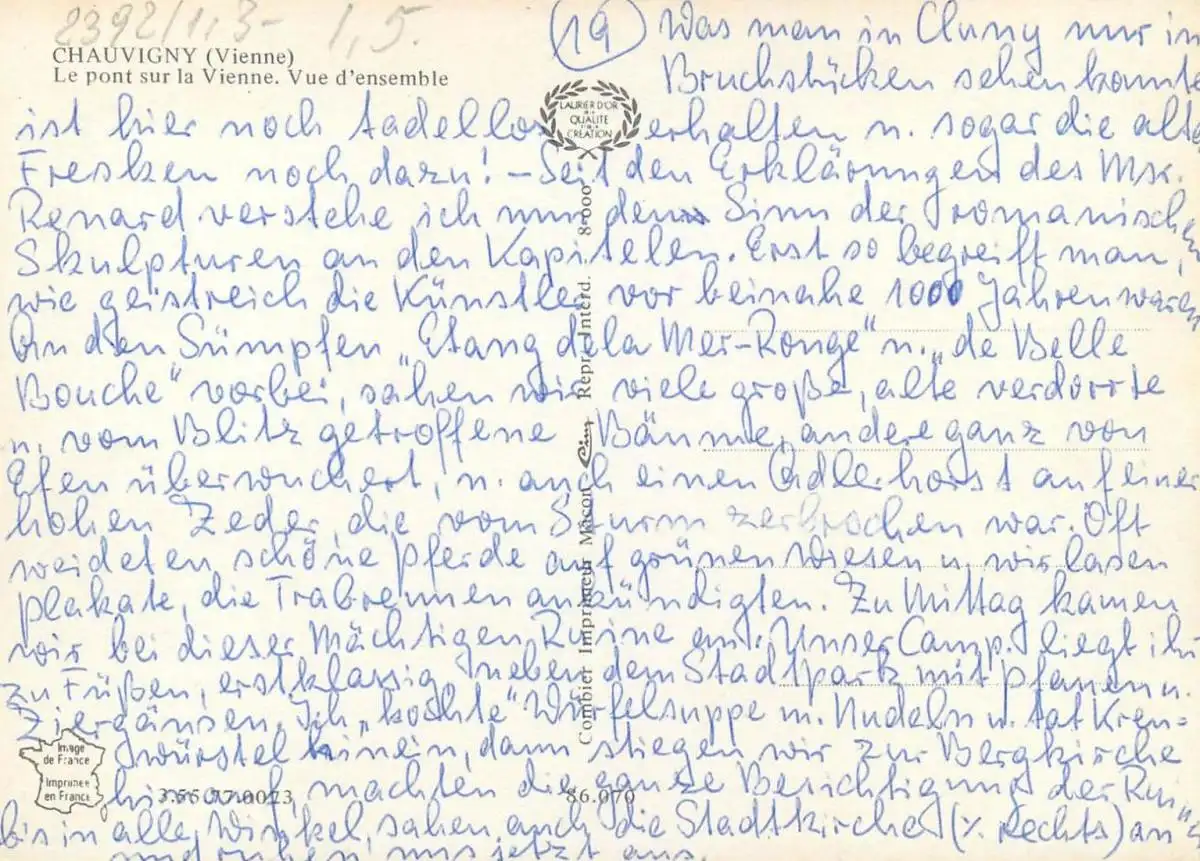 2392/1,3- 1,5.
CHAUVIGNY (Vienne)
Le pont sur la Vienne. Vue d'ensemble
LAURIER D'OR
QUALITÉ
CRÉATION
(19) Was man in Cluny nur in
Bruchstücken sehen konnte
ist hier noch tadellos erhalten u. sogar die alte
Fresken noch dazu! – Seit den Erklärungen des
Renard verstehe ich nun den Sinn der romanischen
Skulpturen an den Kapitelen. Erst so begreift man,
wie geistreich die Künstler vor beinahe 1000 Jahren waren
An den Sümpfen „Etang de la Mer-Rouge" u. „de Belle
Bouche" vorbei, sahen wir viele große, alte verdorrte
u. vom Blitz getroffene Bäume, andere ganz von
Efeu überwuchert, u. auch einen Adlerhorst auf einer
hohen Zeder, die vom Sturm zerbrochen war. Oft
weideten schöne Pferde auf grünen Wiesen u. wir lasen
Plakate, die Trabrennen ankündigten. Zu Mittag kamen
wir bei dieser mächtigen Ruine an. Unser Camp. liegt ihr
zu Füßen, erstklassig neben dem Stadtpark mit Pfauen u.
Ziergänsen. Ich „kochte" Würfelsuppe m. Nudeln u. tat Kren-
würstel hinein, dann stiegen wir zur Bergkirche
hinauf machten die ganze Besichtigung der
bis in alle Winkel, sahen auch die Stadtkirche (%. Rechts) an
und ruhen uns jetzt aus.
Combier Imprimeur Macon Cim Repr. Interd. 8-000
Image
de France
Imprimée
en France
3.65 77.0023
86.070